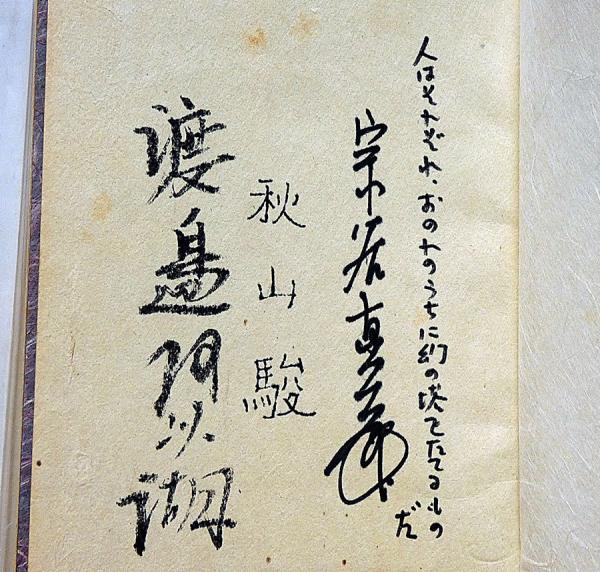 人はそれぞれ、おのれのうちに幻の塔をたてるもの
だ
宗谷真爾
秋山駿
渡邉阿以湖